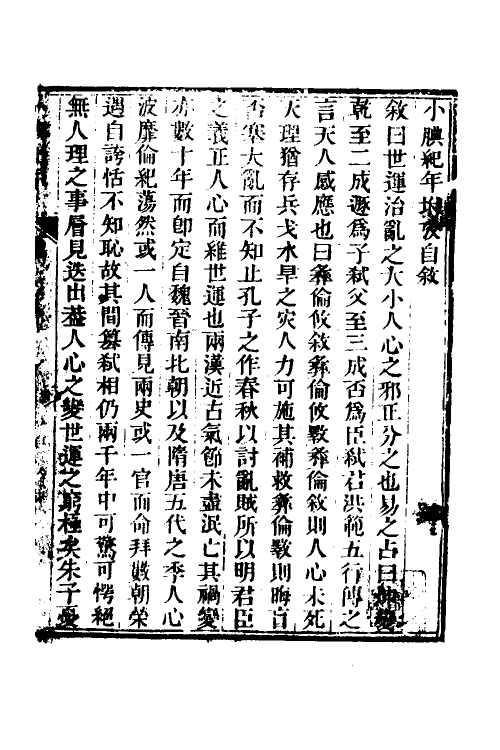 小腆紀年附攷自敘
敘曰世運治亂之大小人心之邪正分之也易之占曰
乾至二成遯為子弒父至三成否為臣弒君洪範五行傳之
言天人感應也曰彝倫攸敘彝倫攸斁彝倫敘則人心未死
大理猶存兵戈水旱之災人力可施其補救彝倫斁則晦盲
否塞大亂而不知止孔子之作春秋以討亂賊所以明君臣
之義正人心而維世運也兩漢近古氣節未盡泯亡其禍變
亦數十年而卽定自魏晉南北朝以及隋唐五代之季人心
波靡倫紀蕩然或一人而傳見兩史或一官而命拜數朝榮
遇自誇恬不知恥故其間篡弒相仍兩千年中可驚可愕絕
無人理之事層見迭出蓋人心之變世運之窮極矣朱子憂